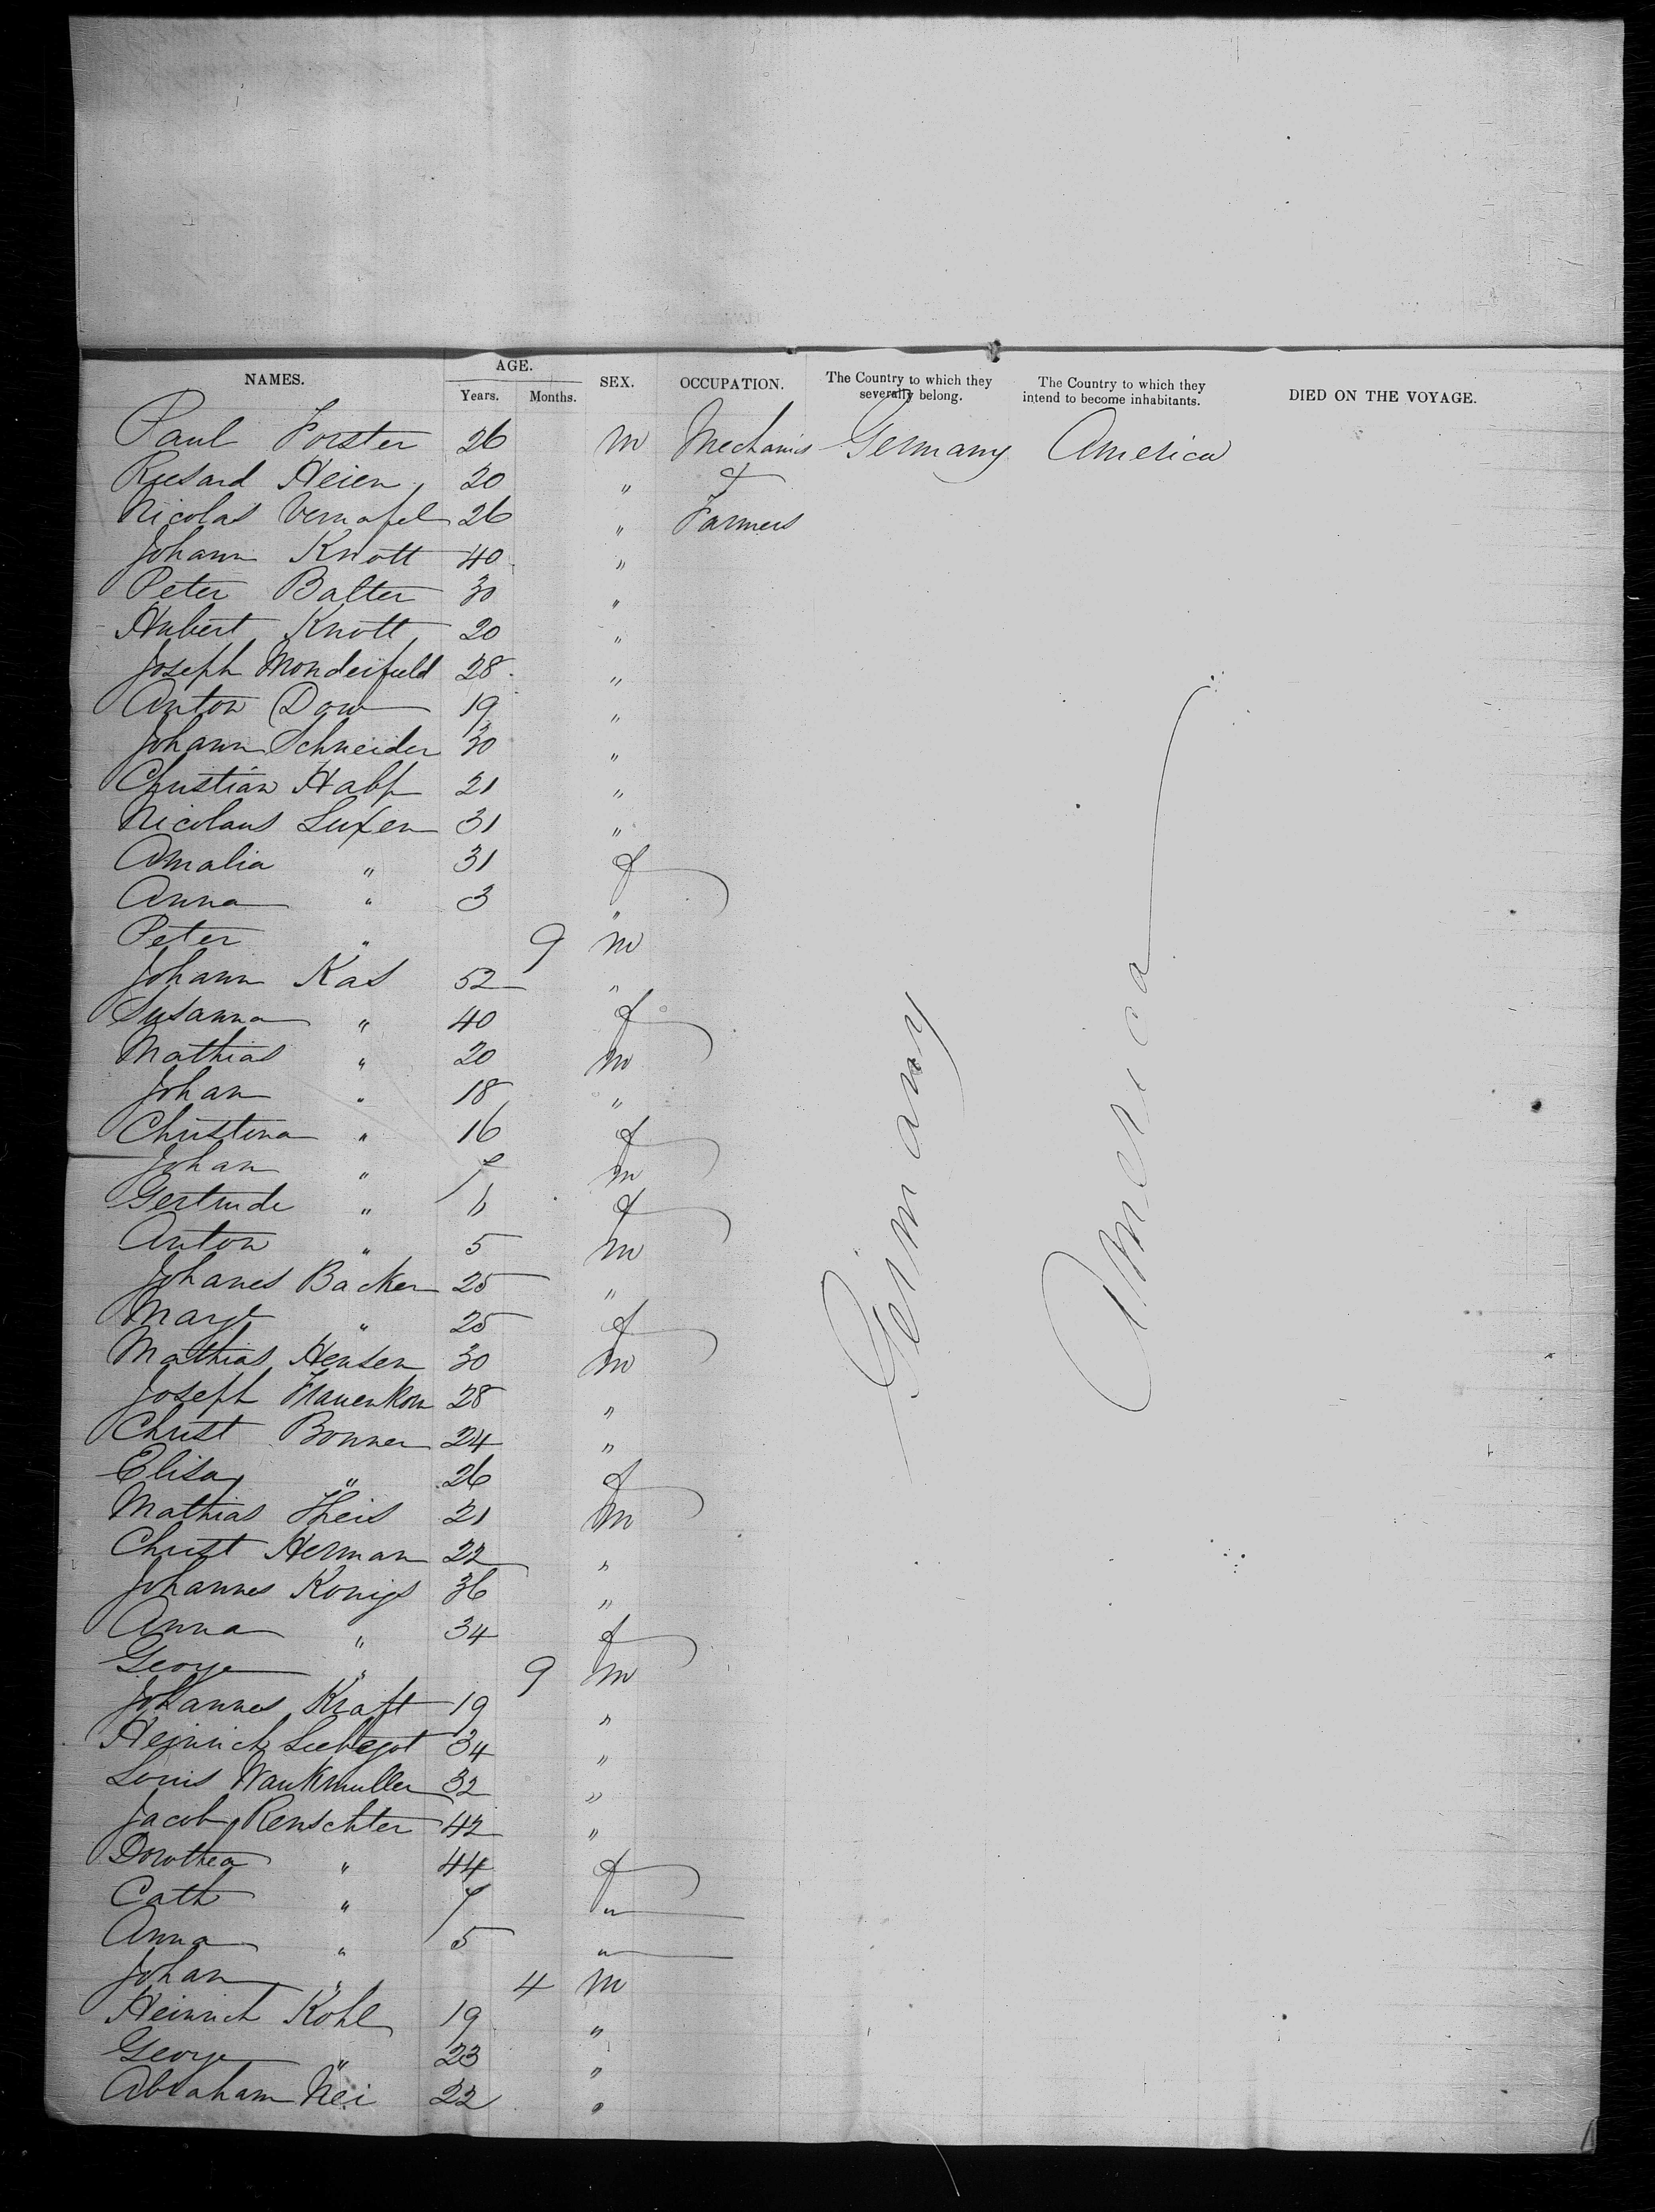 NAMES. AGE. Years. Months. SEX. OCCUPATION. The Country to which they severally belong. The Country to which they intend to become inhabitants. DIED ON THE VOYAGE.
Paul Forster 26 m Mechanics Germany America
Heien 20 " &
Nicolas 26 " Farmers
Johann Knott 40 "
Peter Balter 30 "
Hubert Knott 20 "
Joseph 28 "
Anton 19 "
Johann Schneider 30 "
Christian 21 "
Nicolaus Luxen 31 "
Amalia " 31 f
Anna " 3 "
Peter " 9 m
Johann Kas 52 "
Susanna " 40 f
Mathias " 20 m
Johan " 18 "
Christina " 16 f
Johan " 7 m
Gertrude " 6 f
Anton " 5 m
Johanes Backer 25 "
Mary " 25 f
Mathias Hensen 30 m
Joseph Frauenkorn 28 "
Christ Bonner 24 "
Elisa " 26 f
Mathias Theis 21 m
Christ Herman 22 "
Johannes Konigs 36 "
Anna " 34 f
George " 9 m
Johannes Kraft 19 "
Heinrich 34 "
Louis Wankmuller 32 "
Jacob Renschter 42 "
Dorothea " 44 f
Cath " 7 "
Anna " 5 "
Johan " 4 m
Heinrich Kohl 19 "
George " 23 "
Abraham Nei 22 "
Germany
America